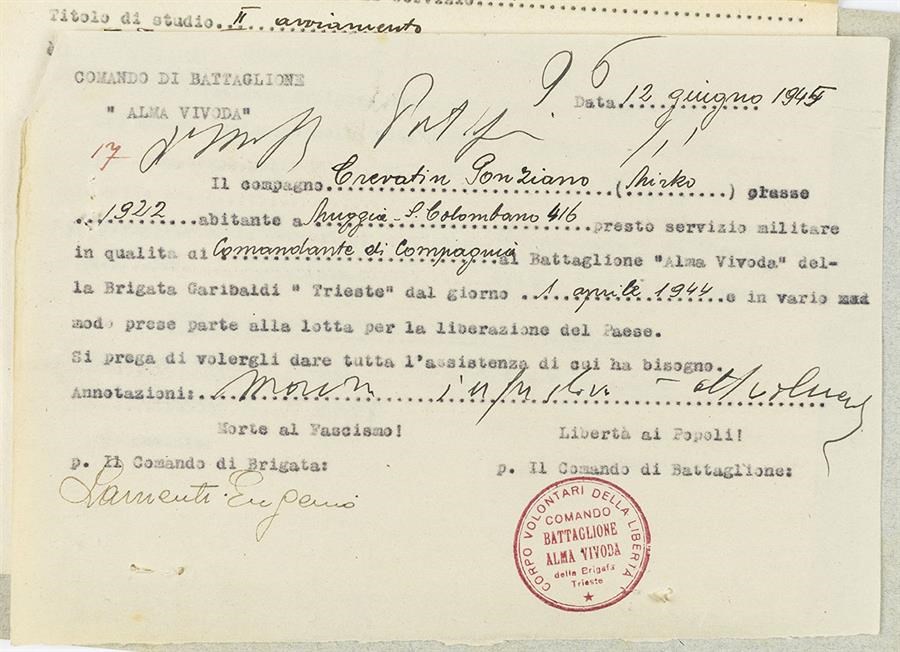 Titolo di studio..II..avviamento
COMANDO DI BATTAGLIONE
" ALMA VIVODA"
96
Data..12 giugno 1945
17
Il compagno..Crevatin Ponziano (Mirko) classe
..1922..abitante a Muggia - S. Colombano 416 presto servizio militare
in qualita di Comandante di Compagnia al Battaglione "Alma Vivoda" del-
la Brigata Garibaldi " Trieste" dal giorno ..1 aprile 1944..e in vario
modo prese parte alla lotta per la liberazione del Paese.
Si prega di volergli dare tutta l'assistenza di cui ha bisogno.
Annotazioni:
Morte al Fascismo! Libertà ai Popoli!
p. Il Comando di Brigata: p. Il Comando di Battaglione:
Eugenio
CORPO VOLONTARI DELLA LIBERTA
COMANDO
BATTAGLIONE
ALMA VIVODA
della Brigata
Trieste